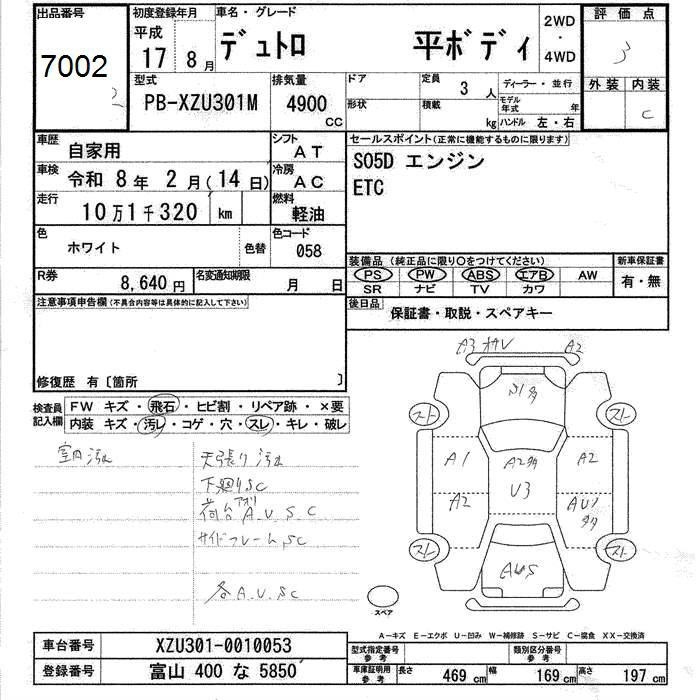 出品番号 初度登録年月 車名・グレード 2WD・4WD 評価点
7002 平成 17 8月 デュトロ 平ボディ 3
2
型式 排気量 ドア 定員 3人 ディーラー・並行 外装 内装
PB-XZU301M 4900cc 形状 積載 kg モデル年式 年 ハンドル 左・右 C
車歴 自家用 シフト AT セールスポイント(正常に機能するものに限ります)
車検 令和 8年 2月(14日) 冷房 AC S05D エンジン
走行 10万1千320 km 燃料 軽油 ETC
色 ホワイト 色替 色コード 058
装備品(純正品に限り○をつけてください) 新車保証書
R券 8,640円 名変通知期限 月 日 PS PW ABS エアB AW 有・無
SR ナビ TV カワ
注意事項申告欄(不具合内容等は具体的に記入して下さい) 後日品 保証書・取説・スペアキー
修復歴 有〔箇所 〕
検査員記入欄 FW キズ・飛石・ヒビ割・リペア跡・×要
内装 キズ・汚レ・コゲ・穴・スレ・キレ・破レ
A3 A2
スト スト
A1 A2タ A2
U3
A2 AU1
スト スト
AUS
室内汚れ 天張り汚れ
下廻りSC
荷台アオリ A.U.S.C
サイドフレームSC
各A.U.SC
スペア
A-キズ E-エクボ U-凹み W-補修跡 S-サビ C-腐食 XX-交換済
車台番号 XZU301-0010053 型式指定番号 参考 類別区分番号 参考
登録番号 富山 400 な 5850 車庫証明用 参考 長さ 469cm 幅 169cm 高さ 197cm